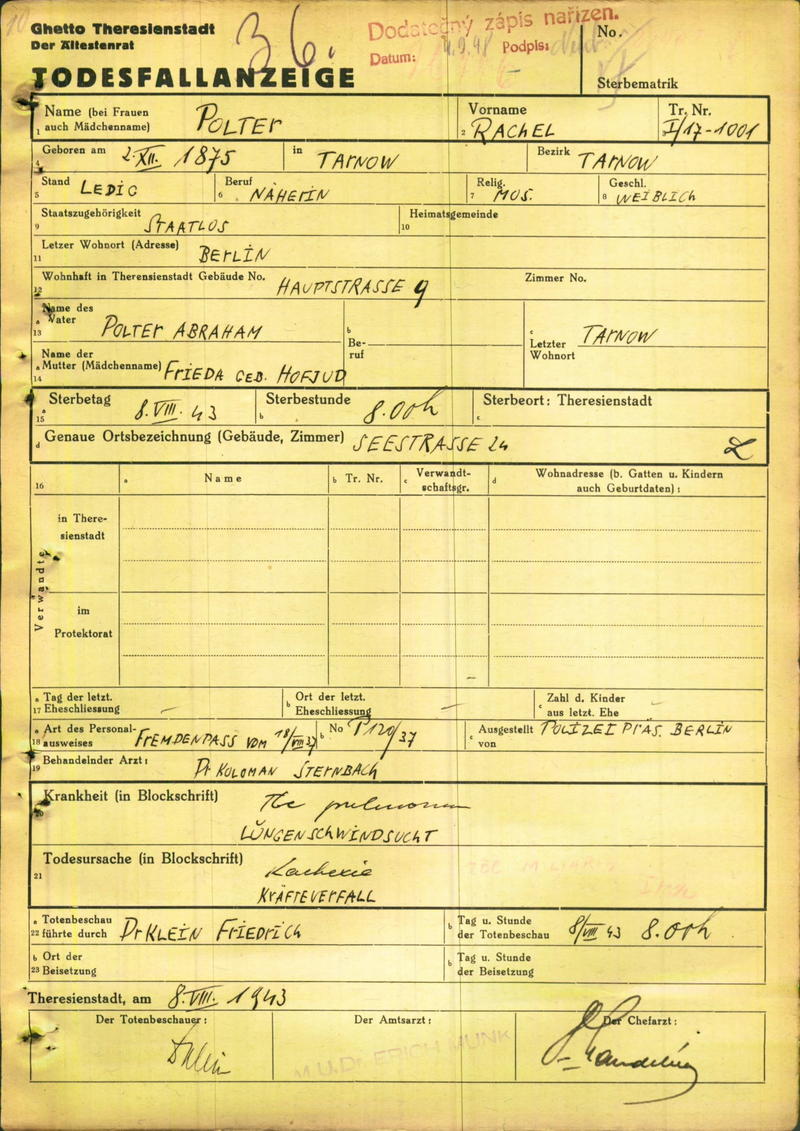 Ghetto Theresienstadt
Der Ältestenrat
TODESFALLANZEIGE
36.
Dodatečný zápis nařízen.
Datum: Podpis:
No.
Sterbematrik
Name (bei Frauen auch Mädchenname) POLTER
1
Vorname
2 RACHEL
Tr. Nr.
3 I/17-1001
Geboren am 2. XII. 1875 in TARNOW Bezirk TARNOW
4
Stand LEDIG
5
Beruf
6 NÄHERIN
Relig.
7 MOS.
Geschl.
8 WEIBLICH
Staatszugehörigkeit STAATLOS
9
Heimatsgemeinde
10
Letzer Wohnort (Adresse) BERLIN
11
Wohnhaft in Therensienstadt Gebäude No. HAUPTSTRASSE 9 Zimmer No.
12
Name des
a Vater POLTER ABRAHAM
13
b
Be-
ruf
c
Letzter TARNOW
Wohnort
Name der
a Mutter (Mädchenname) FRIEDA GEB. HOFJUD
14
a Sterbetag 8. VIII. 43
15
Sterbestunde 8.00h
b
Sterbeort: Theresienstadt
c
d Genaue Ortsbezeichnung (Gebäude, Zimmer) SEESTRASSE 24
16
a Name
b Tr. Nr.
c Verwandt-
schaftsgr.
d Wohnadresse (b. Gatten u. Kindern
auch Geburtdaten):
Verwandte
in There-
sienstadt
im
Protektorat
a Tag der letzt.
17 Eheschliessung –
b Ort der letzt.
Eheschliessung –
c Zahl d. Kinder
aus letzt. Ehe –
a Art des Personal-
18 ausweises FREMDENPASS VOM 18/VIII 37
b No P120/37
c Ausgestellt POLIZEI PRÄS. BERLIN
von
Behandelnder Arzt: Dr KOLOMAN STERNBACH
19
Krankheit (in Blockschrift) Tbc pulmonum
20
LUNGENSCHWINDSUCHT
Todesursache (in Blockschrift) Kachexie
21
KRÄFTEVERFALL
a Totenbeschau
22 führte durch Dr KLEIN FRIEDRICH
b Tag u. Stunde
der Totenbeschau 8/VIII 43 8.00h
b Ort der
23 Beisetzung
b Tag u. Stunde
der Beisetzung
Theresienstadt, am 8. VIII. 1943
Der Totenbeschauer:
Klein
Der Amtsarzt:
M.U.Dr. ERICH MUNK
Der Chefarzt: